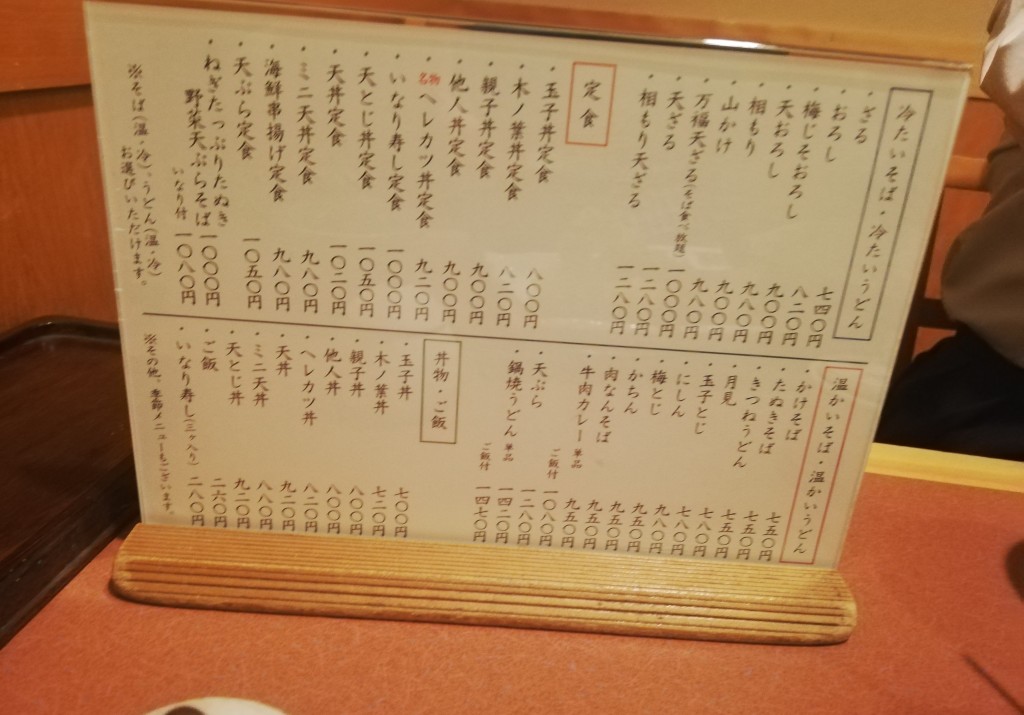 冷たいそば・冷たいうどん
・ざる 七四〇円
・おろし 八二〇円
・梅じそおろし 九〇〇円
・天おろし 九八〇円
・相もり 九〇〇円
・山かけ 九八〇円
・万福天ざる(そば食べ放題) 一〇〇〇円
・天ざる 一二八〇円
・相もり天ざる 一二八〇円
定食
・玉子丼定食 八〇〇円
・木ノ葉丼定食 八二〇円
・親子丼定食 九〇〇円
・他人丼定食 九〇〇円
・名物ヘレカツ丼定食 九二〇円
・いなり寿し定食 一〇〇〇円
・天とじ丼定食 一〇五〇円
・天丼定食 一〇二〇円
・ミニ天丼定食 九八〇円
・海鮮串揚げ定食 九八〇円
・天ぷら定食 一〇五〇円
・ねぎたっぷりたぬき 一〇〇〇円
野菜天ぷらそば
いなり付 一〇八〇円
※そば(温・冷)、うどん(温・冷)
お選びいただけます。
温かいそば・温かいうどん
・かけそば 七五〇円
・たぬきそば 七五〇円
・きつねうどん 七五〇円
・月見 七八〇円
・玉子とじ 七八〇円
・にしん 九八〇円
・梅とじ 九五〇円
・かちん 九五〇円
・肉なんそば 九五〇円
・牛肉カレー 単品 九五〇円
ご飯付 一〇八〇円
・天ぷら 一二八〇円
・鍋焼うどん 単品 一四二〇円
ご飯付 一四七〇円
丼物・ご飯
・玉子丼 七〇〇円
・木ノ葉丼 七二〇円
・親子丼 八〇〇円
・他人丼 八〇〇円
・ヘレカツ丼 八二〇円
・天丼 九二〇円
・ミニ天丼 八八〇円
・天とじ丼 九二〇円
・ご飯 二六〇円
・いなり寿し(三ヶ入り) 二八〇円
※その他、季節メニューもございます。